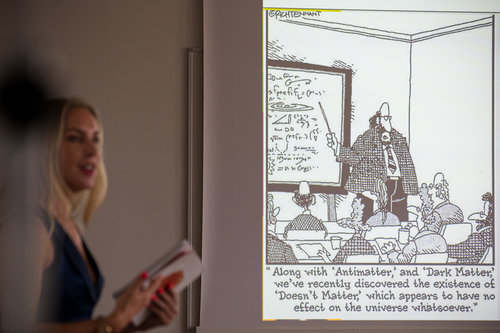 ©RICHTENNANT
"Along with 'Antimatter,' and 'Dark Matter,'
we've recently discovered the existence of
'Doesn't Matter,' which appears to have no
effect on the universe whatsoever."